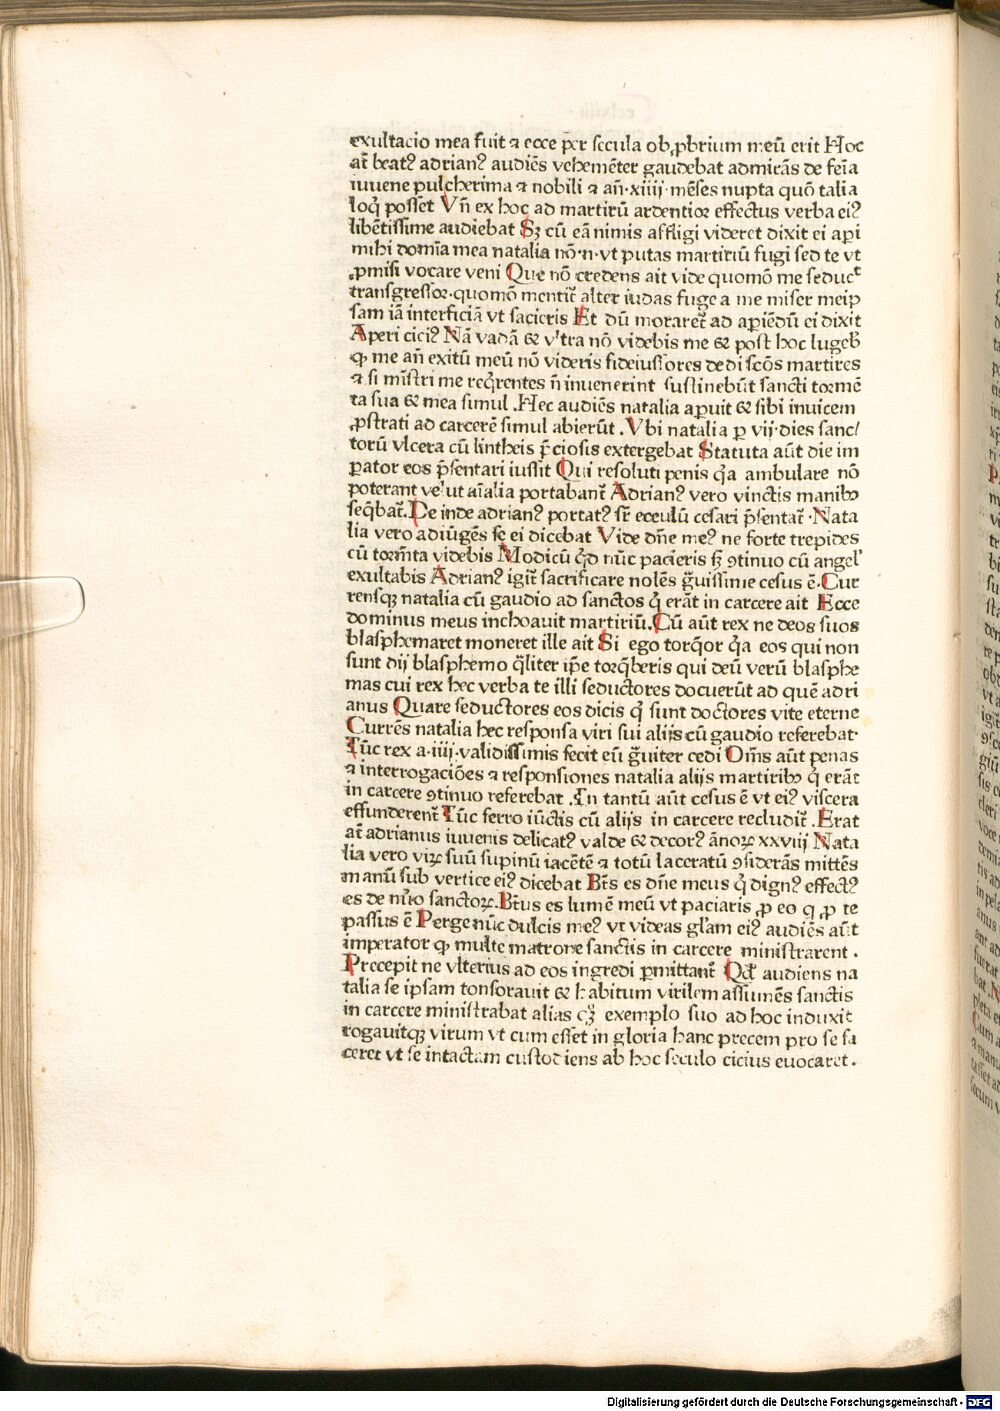 exultacio mea fuit ⁊ ecce per secula ob ꝓbrium meū erit Hoc
at̄ beatꝰ adrianꝰ audiēs vehemēter gaudebat admirās de feīa
iuuene pulcherima ⁊ nobili ⁊ an̄·xiiij·mēses nupta quō talia
loqͥ posset Vn̄ ex hoc ad martiriū ardentior effectus verba eiꝰ
libētissime audiebat Sꝫ cū eā nimis affligi videret dixit ei api
mihi domīa mea natalia nō·n·vt putas martiriū fugi sed te vt
ꝓmisi vocare veni Que nō credens ait vide quomō me seduc̄t
transgressor·quomō mentit̄ alter iudas fuge a me miser meip
sam iā interficiā vt sacieris Et dū moraret̄ ad apiēdū ei dixit
Aperi ciciꝰ Nā vadā & vltra nō videbis me & post hoc lugeb̄
ꝙ me an̄ exitū meū nō videris fideiussores dedi scōs martires
⁊ si mīstri me reqͥrentes n̄ inuenerint sustinebūt sancti tormē
ta sua & mea simul .Hec audiēs natalia aꝑuit & sibi inuicem
ꝓstrati ad carcerē simul abierūt .Vbi natalia ꝑ vij·dies sanc/
torū vlcera cū lintheis p̄ciosis extergebat Statuta aūt die im
ꝑator eos p̄sentari iussit Qui resoluti penis qͥa ambulare nō
poterant velut aīalia portabant̄ Adrianꝰ vero vinctis manibꝰ
seq̄bat̄.De inde adrianꝰ portatꝰ sr̄ eculū cesari p̄sentat̄ ·Nata
lia vero adiūgēs se ei dicebat Vide dn̄e meꝰ ne forte trepides
cū torm̄ta videbis Modicū qͥd nūc pacieris sꝫ ꝯtinuo cū angel'
exultabis Adrianꝰ igit̄ sacrificare nolēs gͣuissime cesus ē·Cur
rensqꝫ natalia cū gaudio ad sanctos qͥ erāt in carcere ait Ecce
dominus meus inchoauit martiriū.Cū aūt rex ne deos suos
blasphemaret moneret ille ait Si ego torqͥor qͥa eos qui non
sunt dij blasphemo qͣliter ip̄e torq̄beris qui deū verū blasphe
mas cui rex hec verba te illi seductores docuerūt ad quē adri
anus Quare seductores eos dicis qͥ sunt doctores vite eterne
Currēs natalia hec responsa viri sui alijs cū gaudio referebat·
Tūc rex a·iiij·validissimis fecit eū gͣuiter cedi Om̄s aūt penas
⁊ interrogaciōes ⁊ responsiones natalia alijs martiribꝰ qͥ erāt
in carcere ꝯtinuo referebat .In tantū aūt cesus ē vt eiꝰ viscera
effunderent̄ Tūc ferro iūctis cū alijs in carcere recludit̄ .Erat
at̄ adrianus iuuenis delicatꝰ valde & decorꝰ ānoꝝ xxviij Nata
lia vero viꝝ suū supinū iacētē ⁊ totū laceratū ꝯsiderās mittēs
manū sub vertice eiꝰ dicebat Bt̄s es dn̄e meus qͥ dignꝰ effectꝰ
es de nūo sanctoꝝ.Bt̄us es lumē meū vt paciaris ꝓ eo q̄ ꝓ te
passus ē Perge nūc dulcis meꝰ vt videas gl̄am eiꝰ audiēs aūt
imperator ꝙ multe matrone sanctis in carcere ministrarent .
Precepit ne vlterius ad eos ingredi ꝑmittant̄ Qd̄ audiens na
talia se ipsam tonsorauit & habitum virilem assumēs sanctis
in carcere ministrabat alias qꝫ exemplo suo ad hoc induxit
rogauitqꝫ virum vt cum esset in gloria hanc precem pro se fa
ceret vt se intactam custodiens ab hoc seculo cicius euocaret .
Digitalisierung gefördert durch die Deutsche Forschungsgemeinschaft - DFG